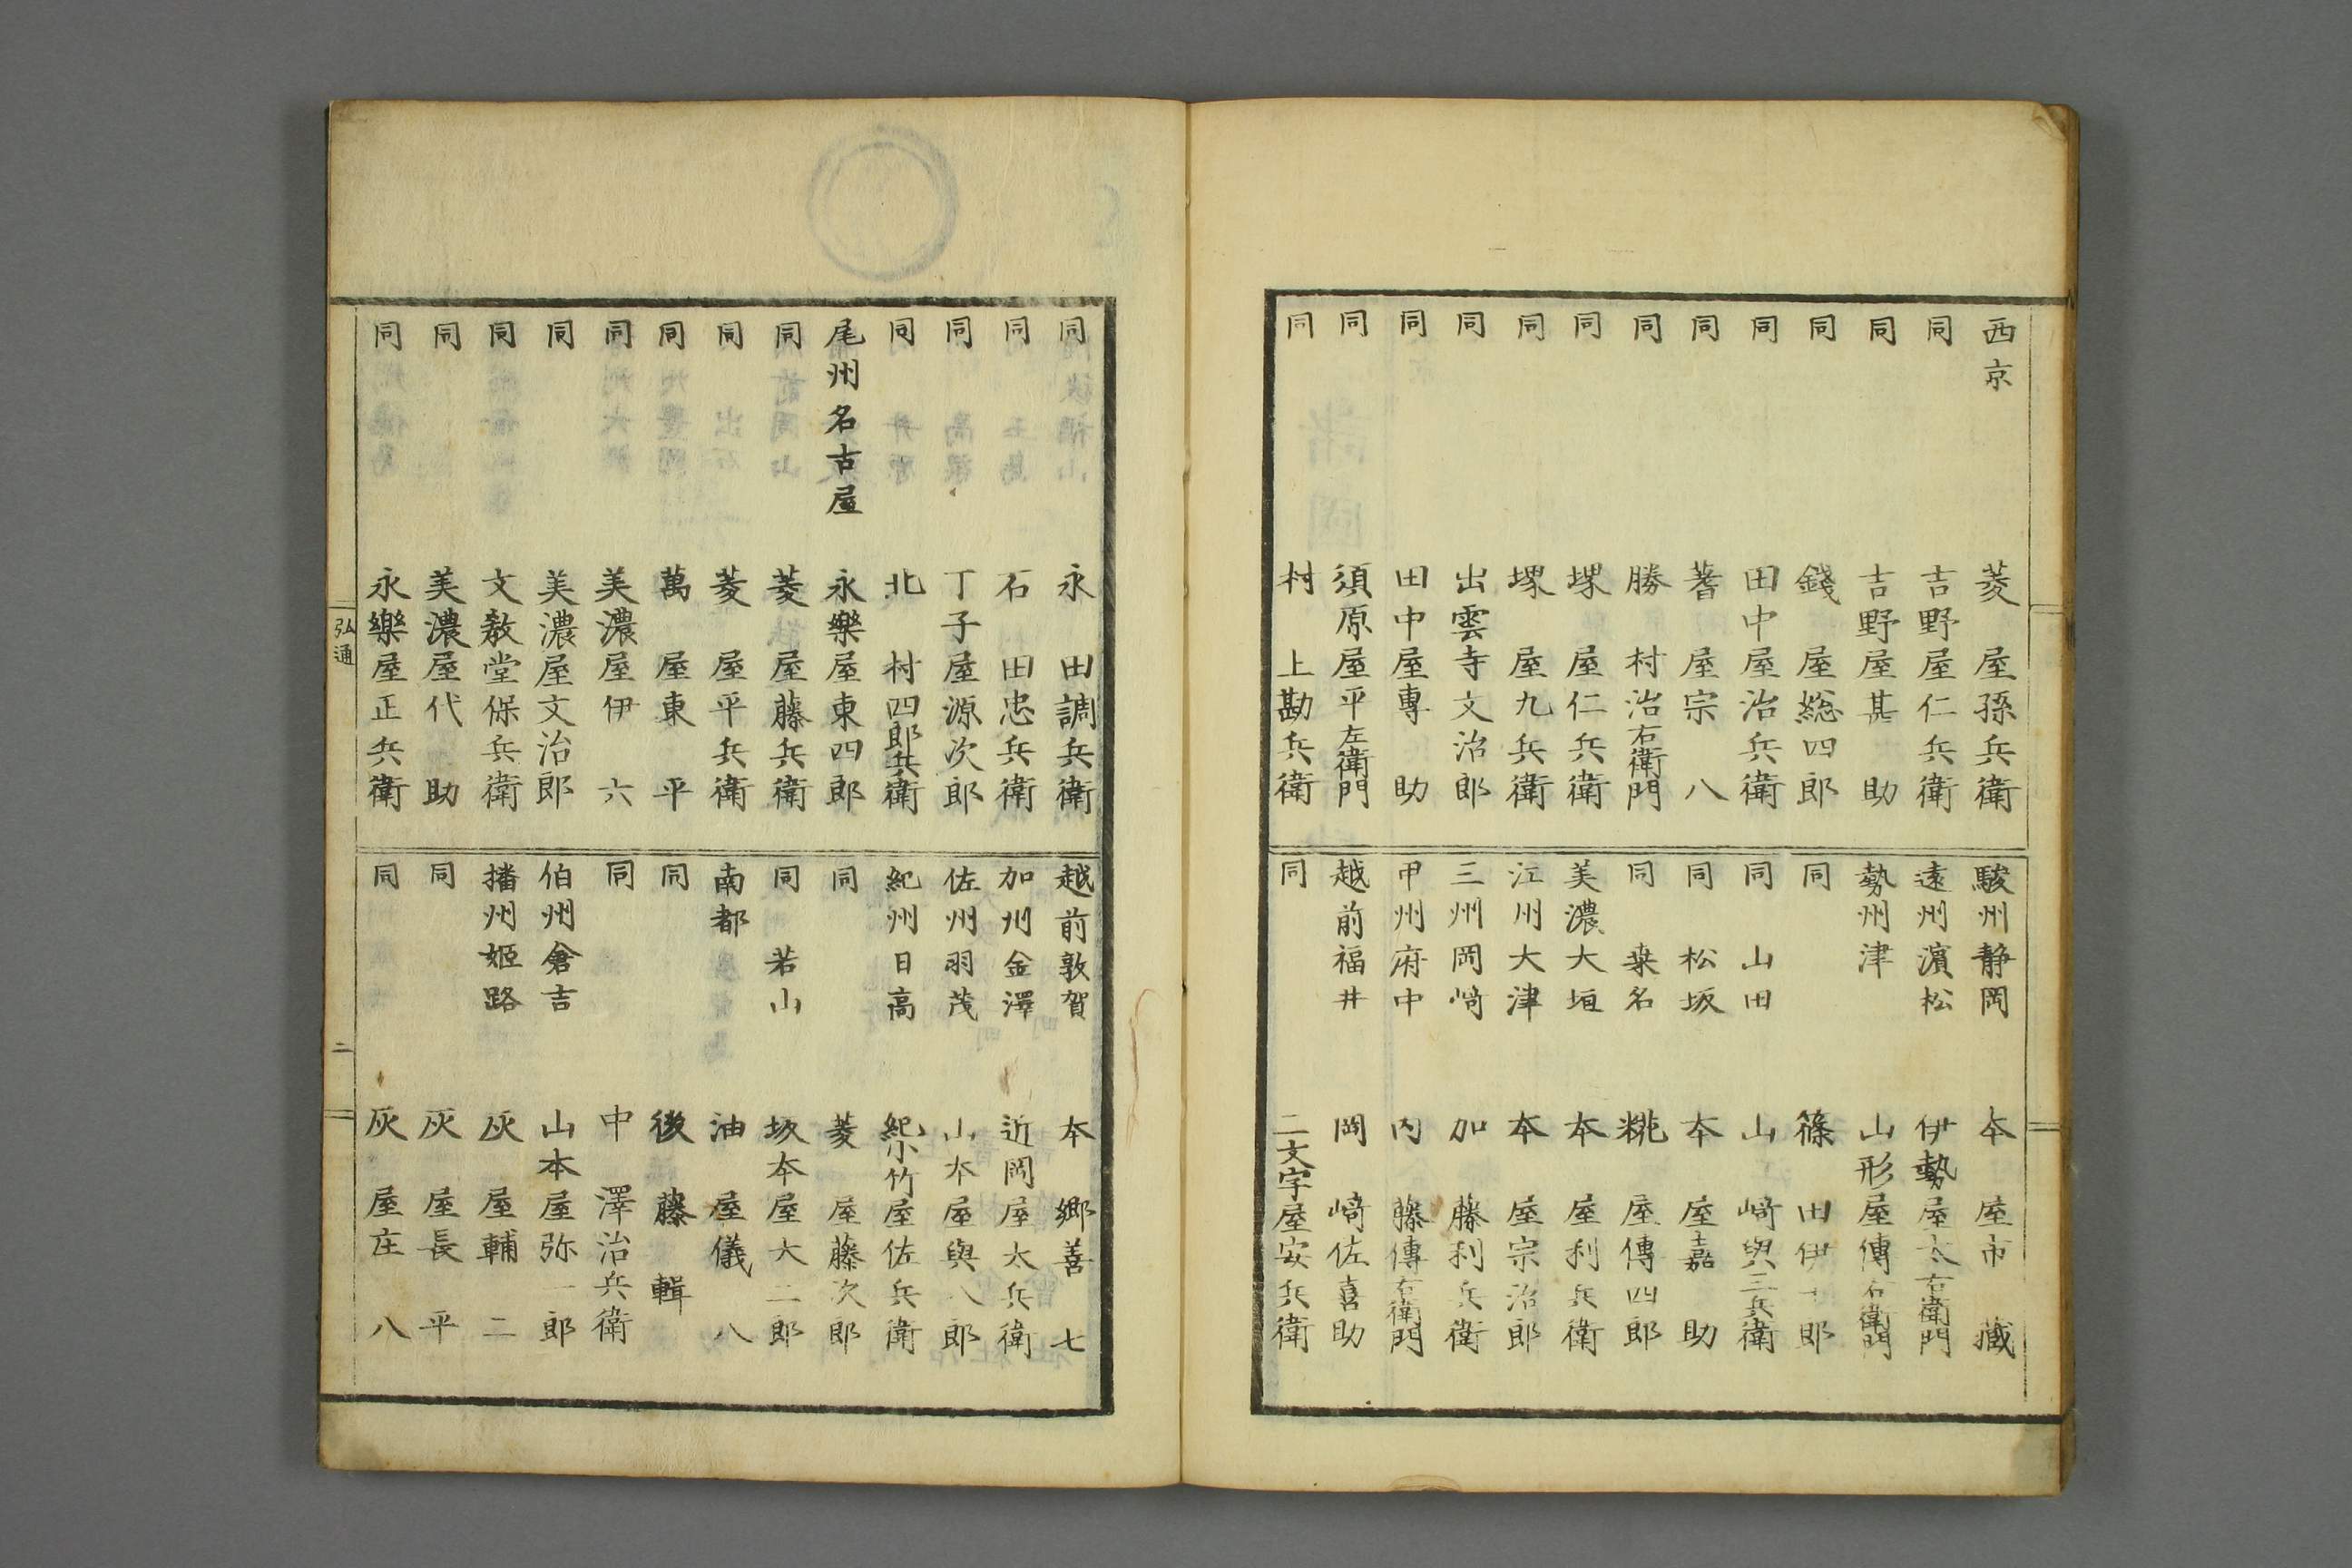 西京 菱屋孫兵衛
同 吉野屋仁兵衛
同 吉野屋甚助
同 錢屋総四郎
同 田中屋治兵衛
同 蓍屋宗八
同 勝村治右衛門
同 堺屋仁兵衛
同 堺屋九兵衛
同 出雲寺文治郎
同 田中屋專助
同 須原屋平左衛門
同 村上勘兵衛
駿州静岡 本屋市藏
遠州濵松 伊勢屋太右衛門
勢州津 山形屋傳右衛門
同 篠田伊十郎
同 山田 山﨑與三兵衛
同 松坂 本屋嘉助
同 桒名 糀屋傳四郎
美濃大垣 本屋利兵衛
江州大津 本屋宗治郎
三州岡﨑 加藤利兵衛
甲州府中 内藤傳右衛門
越前福井 岡﨑佐喜助
同 二文字屋安兵衛
同 永田調兵衛
同 石田忠兵衛
同 丁子屋源次郎
同 北村四郎兵衛
尾州名古屋 永樂屋東四郎
同 菱屋藤兵衛
同 菱屋平兵衛
同 萬屋東平
同 美濃屋伊六
同 美濃屋文治郎
同 文敎堂保兵衛
同 美濃屋代助
同 永樂屋正兵衛
越前敦賀 本郷善七
加州金澤 近岡屋太兵衛
佐州羽茂 山本屋與八郎
紀州日高 紀小竹屋佐兵衛
同 菱屋藤次郎
同 若山 坂本屋大二郎
南都 油屋儀八
同 後藤輯
同 中澤治兵衛
伯州倉吉 山本屋弥一郎
播州姬路 灰屋輔二
同 灰屋長平
同 灰屋庄八
弘通 二